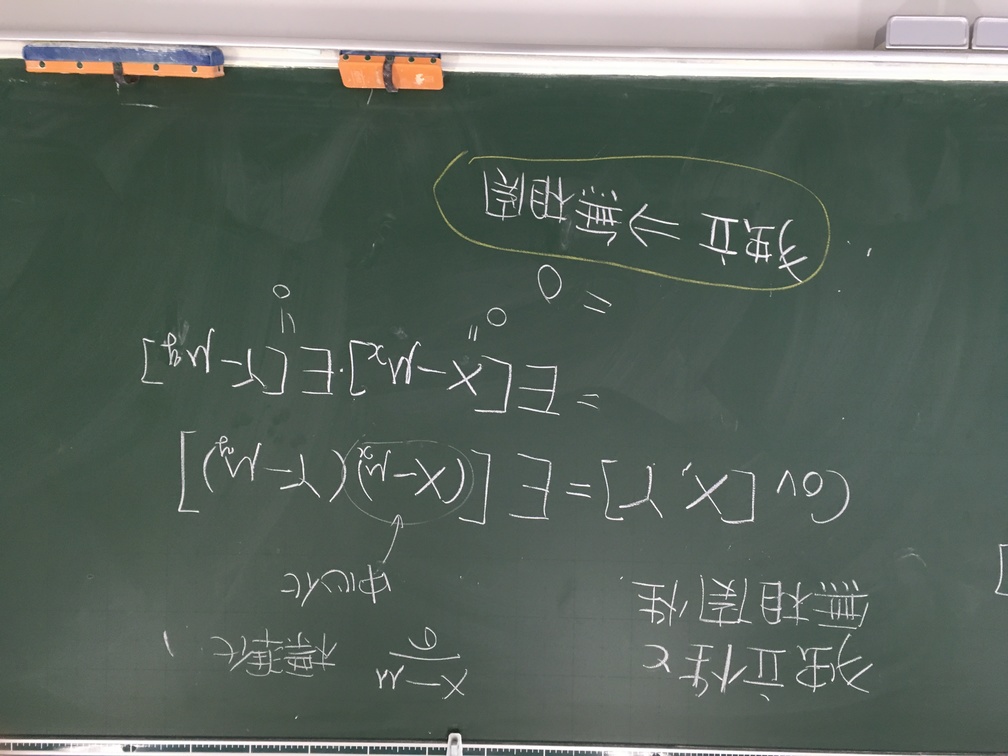 独立性と
無相関性.
X-μ
σ
標準化
中心化
Cov [X, Y] = E [(X-μx)(Y-μy)]
= E[X-μx]·E[Y-μy]
0 " " 0
= 0
独立 ⇒ 無相関